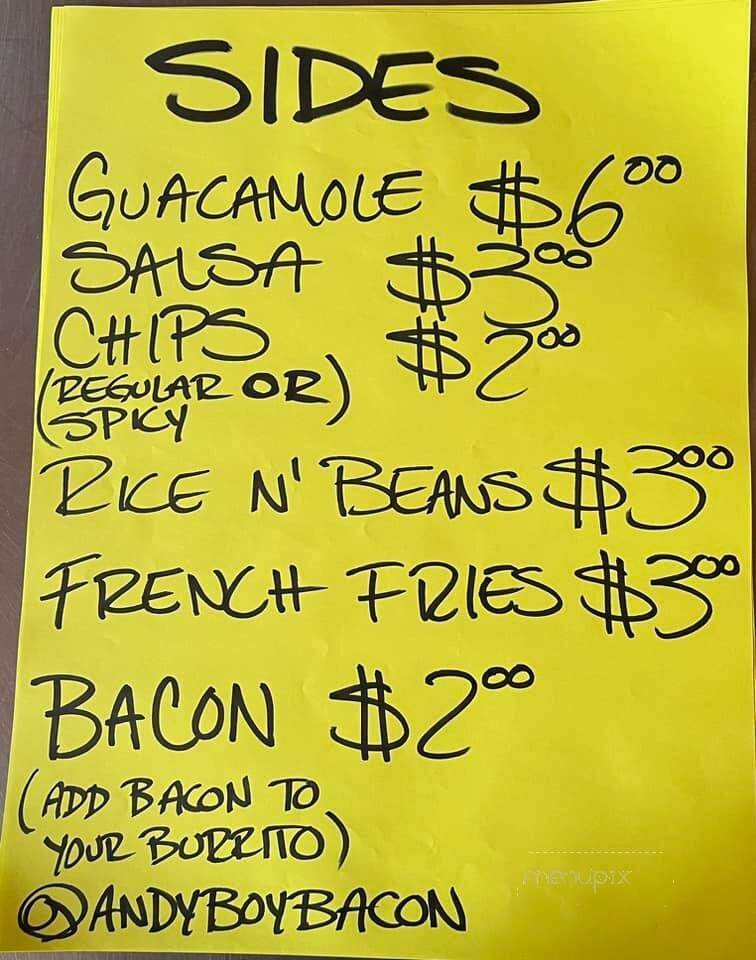 SIDES
GUACAMOLE $6.00
SALSA $3.00
CHIPS $2.00
(REGULAR OR)
SPICY
RICE N' BEANS $3.00
FRENCH FRIES $3.00
BACON $2.00
(ADD BACON TO
YOUR BURRITO)
@ANDYBOYBACON
menupix